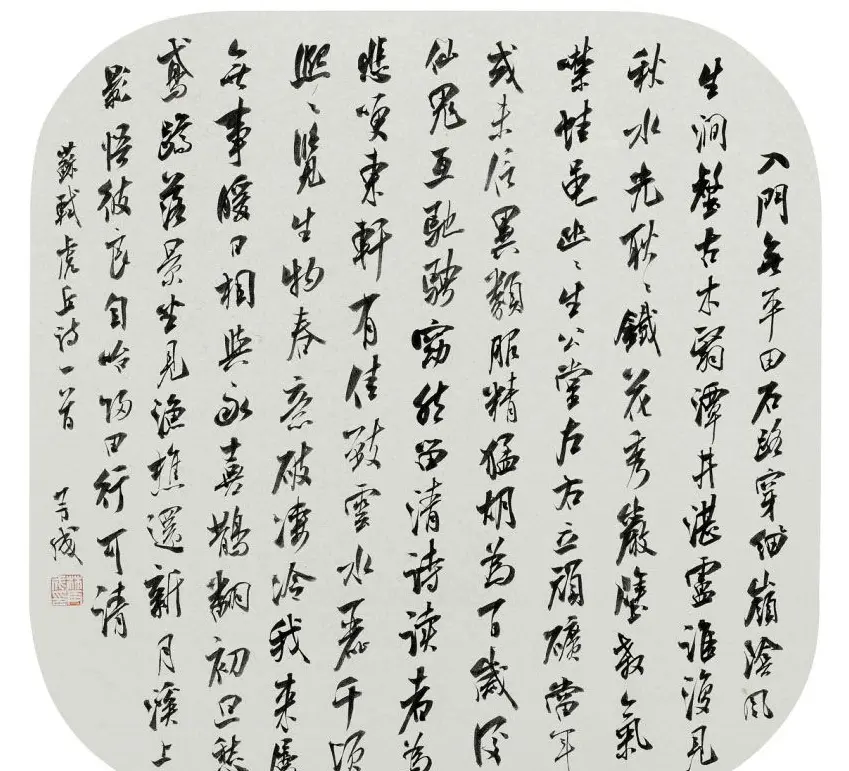 入門無平田石路穿細嶺陰風
生澗壑古木翳潭井湛盧誰復見
秋水光耿〻鐵花秀巖壁殺氣
噤蛙黽幽〻生公堂左右立頑礦當年
或未信異類服精猛胡為百歲後
仙鬼互馳騁窈然留清詩讀者為
悲哽東軒有佳致雲水麗千頃
熙〻覽生物春意破淒冷我來屬
無事暖日相與永喜鵲翻初旦愁
鳶蹲落景坐見漁樵還新月溪上
影悟彼良自咍歸田行可請
蘇軾虎丘詩一首